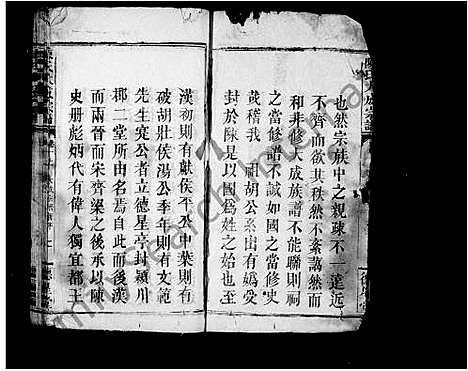 也然宗族中之親疎不一遠近
不齊而欲其秩然不紊藹然而
和非修大成族譜不能聯則祠
之當修譜不誠如國之當修史
哉稽我 祖胡公系由有媯受
封於陳是以國為姓之始也至
漢初則有獻侯平及中葉則有
破胡壯侯湯公季年則有文範
先生寔公者立德星堂封潁川
郡二堂所由名焉自此而後漢
而兩晉而宋齊梁之後承以陳
史册彪炳代有偉人獨宜都王